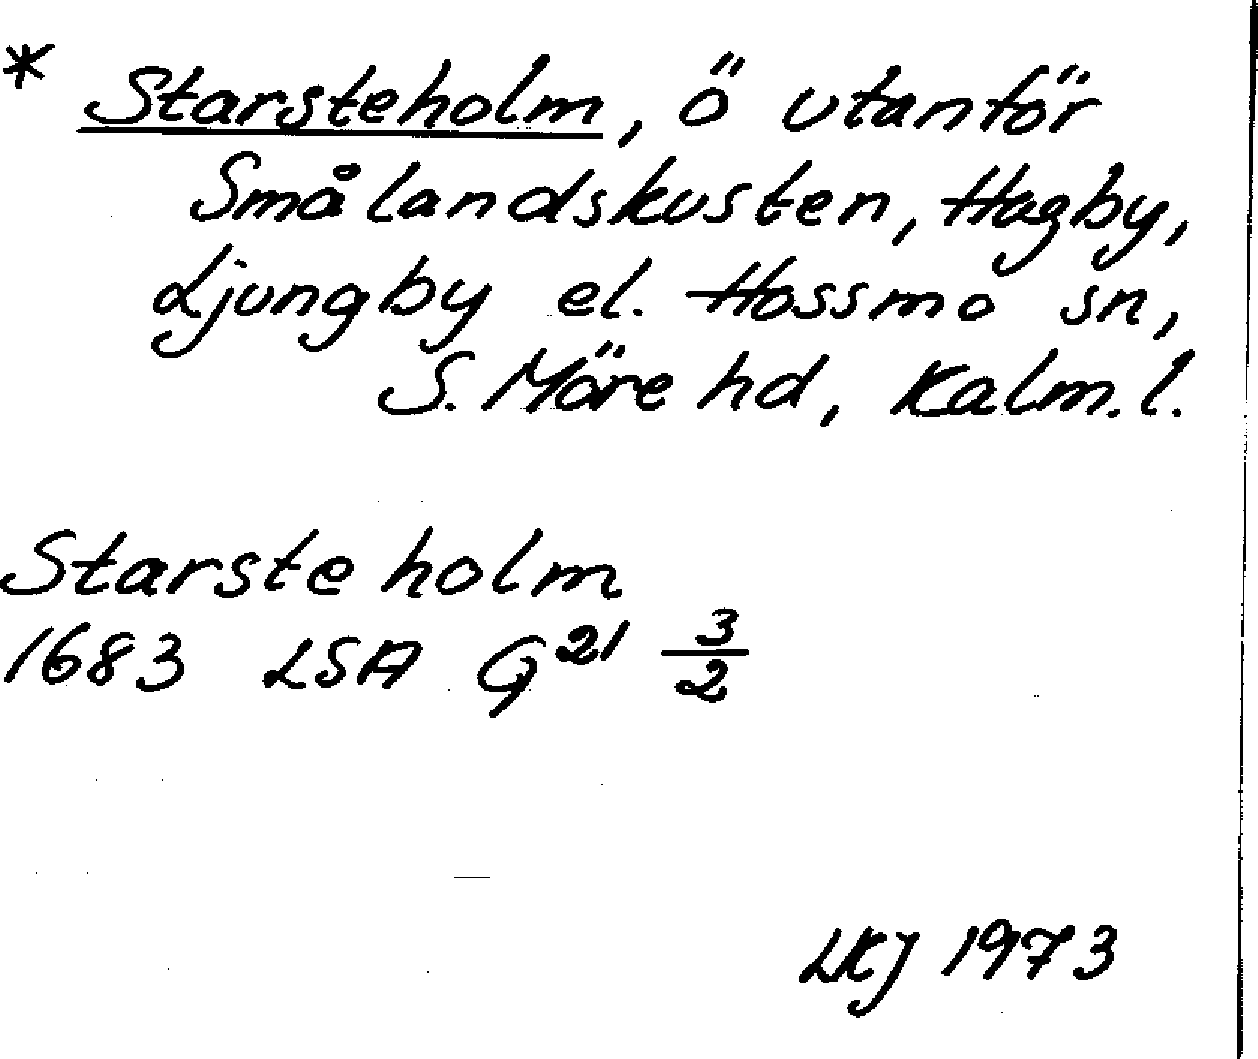 * Starsteholm, ö utanför
Smålandskusten, Hagby,
Ljungby el. Hossmo sn,
S. Möre hd, Kalm. l.
Starste holm
1683 LSA G²¹ 3/2
LKJ 1973